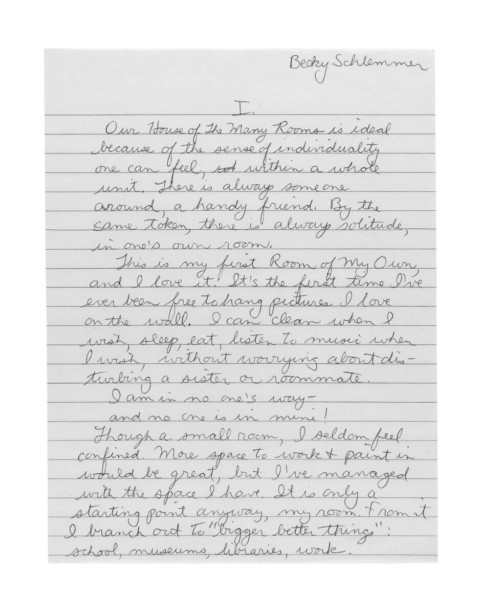 Becky Schlemmer
I.
Our House of The Many Rooms is ideal
because of the sense of individuality
one can feel, within a whole
unit. There is always someone
around, a handy friend. By the
same token, there is always solitude,
in one's own room.
This is my first Room of My Own,
and I love it. It's the first time I've
ever been free to hang pictures I love
on the wall. I can clean when I
wish, sleep, eat, listen to music when
I wish, without worrying about dis-
turbing a sister or roommate.
I am in no one's way—
and no one is in mine!
Though a small room, I seldom feel
confined. More space to work & paint in
would be great, but I've managed
with the space I have. It is only a
starting point anyway, my room. From it
I branch out to "bigger better things":
school, museums, libraries, work.